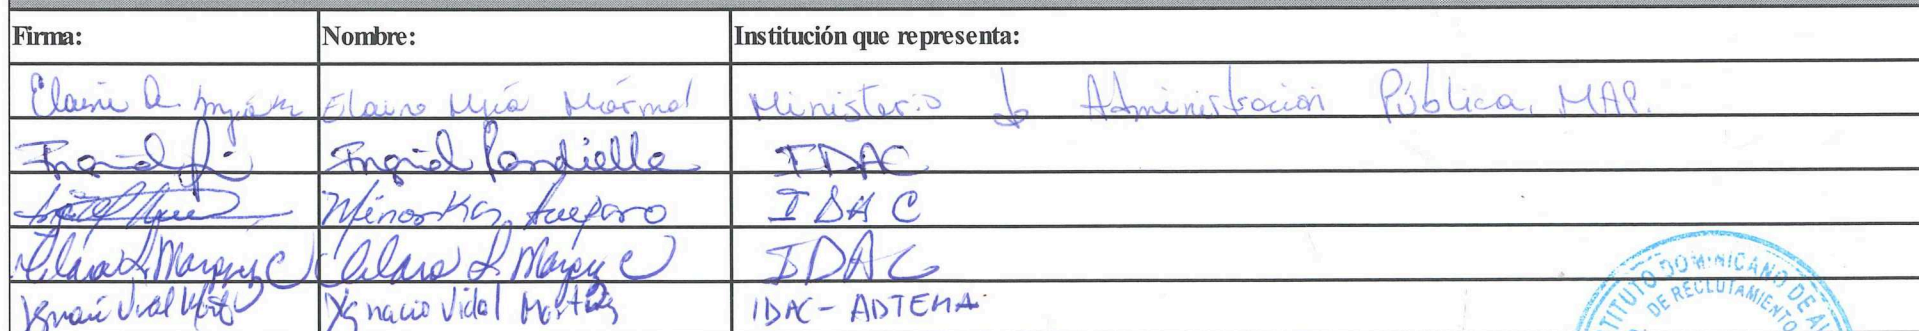 Firma: Nombre: Institución que representa:
Elaine Mejía Mármol Ministerio de Administración Pública, MAP.
Ingrid Ingrid Pardiella IDAC
Minoska IDAC
Clara L. Marquez C Clara L. Marquez C IDAC
Ignacio Vidal Ygnacio Vidal Martinez IDAC - ADTEMA
INSTITUTO DOMINICANO DE
DE RECLUTAMIENTO